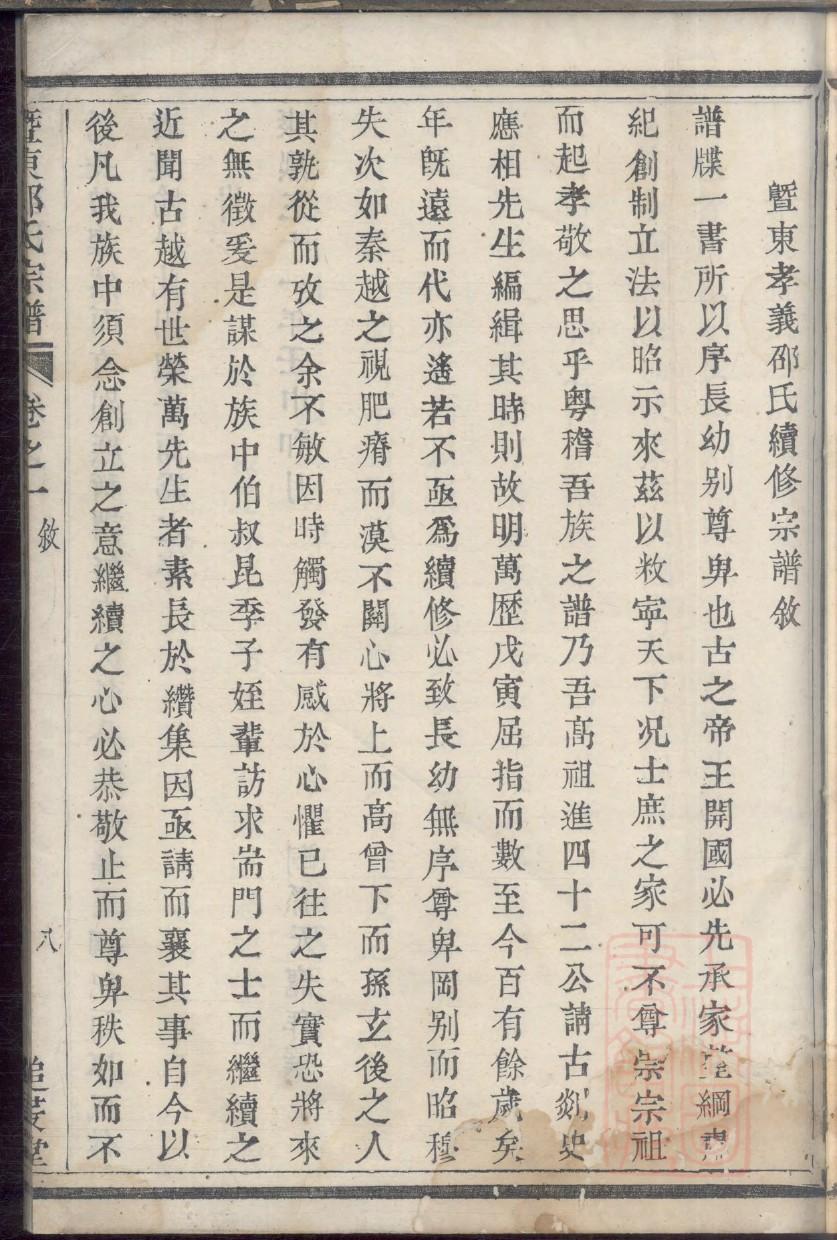 暨東孝義邵氏續修宗譜敘
譜牒一書所以序長幼别尊卑也古之帝王開國必先承家堂綱肅
紀創制立法以昭示來茲以敉寧天下况士庶之家可不尊崇宗祖
而起孝敬之思乎粤稽吾族之譜乃吾髙祖進四十二公請古剡史
應相先生編緝其時則故明萬歷戊寅屈指而數至今百有餘歲矣
年旣遠而代亦遙若不亟爲續修必致長幼無序尊卑罔别而昭穆
失次如秦越之視肥瘠而漠不關心將上而高曾下而孫玄後之人
其孰從而攷之余不敏因時觸發有感於心懼已往之失實恐將來
之無徵爰是謀於族中伯叔昆季子姪輩訪求耑門之士而繼續之
近聞古越有世榮萬先生者素長於纘集因亟請而襄其事自今以
後凡我族中須念創立之意繼續之心必恭敬止而尊卑秩如而不
暨東邵氏宗譜 卷之一 敘 八 追遠堂